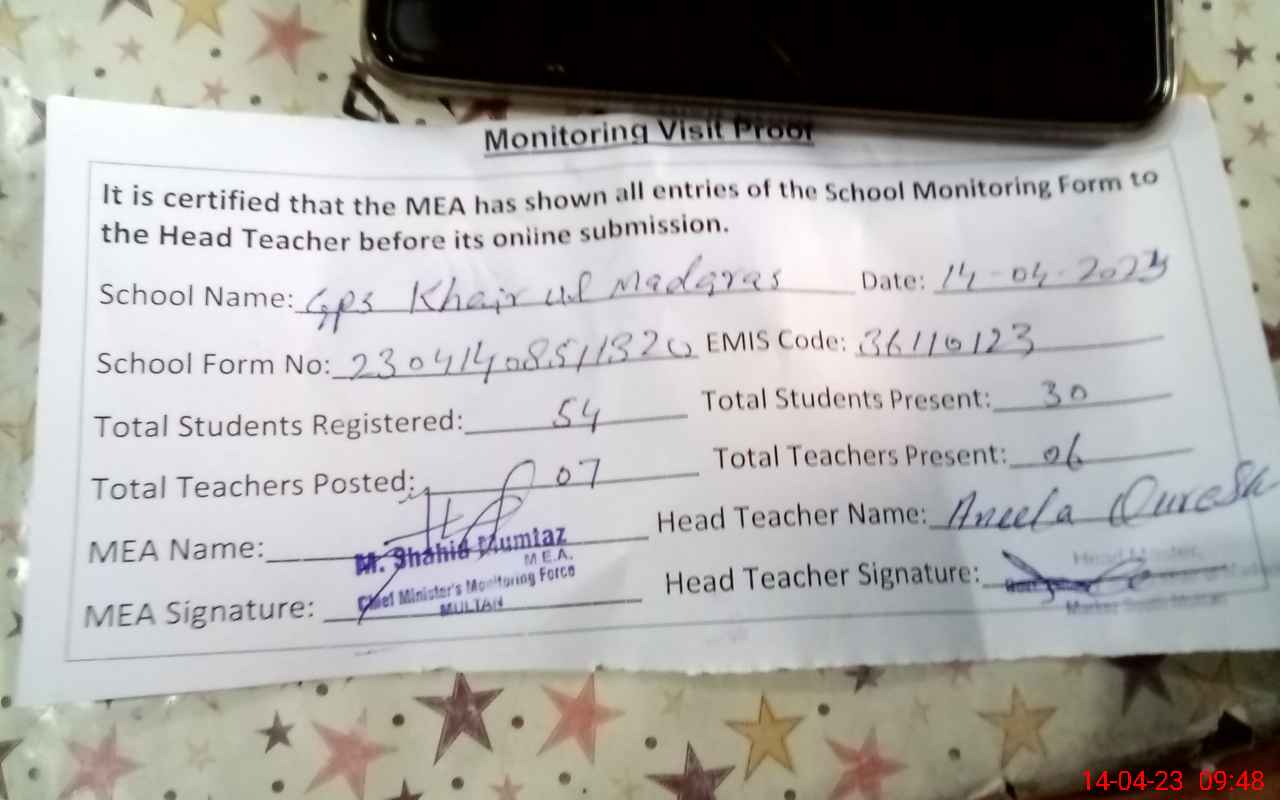 Monitoring Visit Proof
It is certified that the MEA has shown all entries of the School Monitoring Form to
the Head Teacher before its online submission.
School Name: Gps Khair ul Madaras Date: 14-04-2023
School Form No: 23041408511320 EMIS Code: 36110123
Total Students Registered: 54 Total Students Present: 30
Total Teachers Posted: 07 Total Teachers Present: 06
MEA Name: M. Shahid Mumtaz Head Teacher Name: Aneela Qureshi
M.E.A.
Chief Minister's Monitoring Force
MEA Signature: MULTAN Head Teacher Signature:
Head Master,
14-04-23 09:48